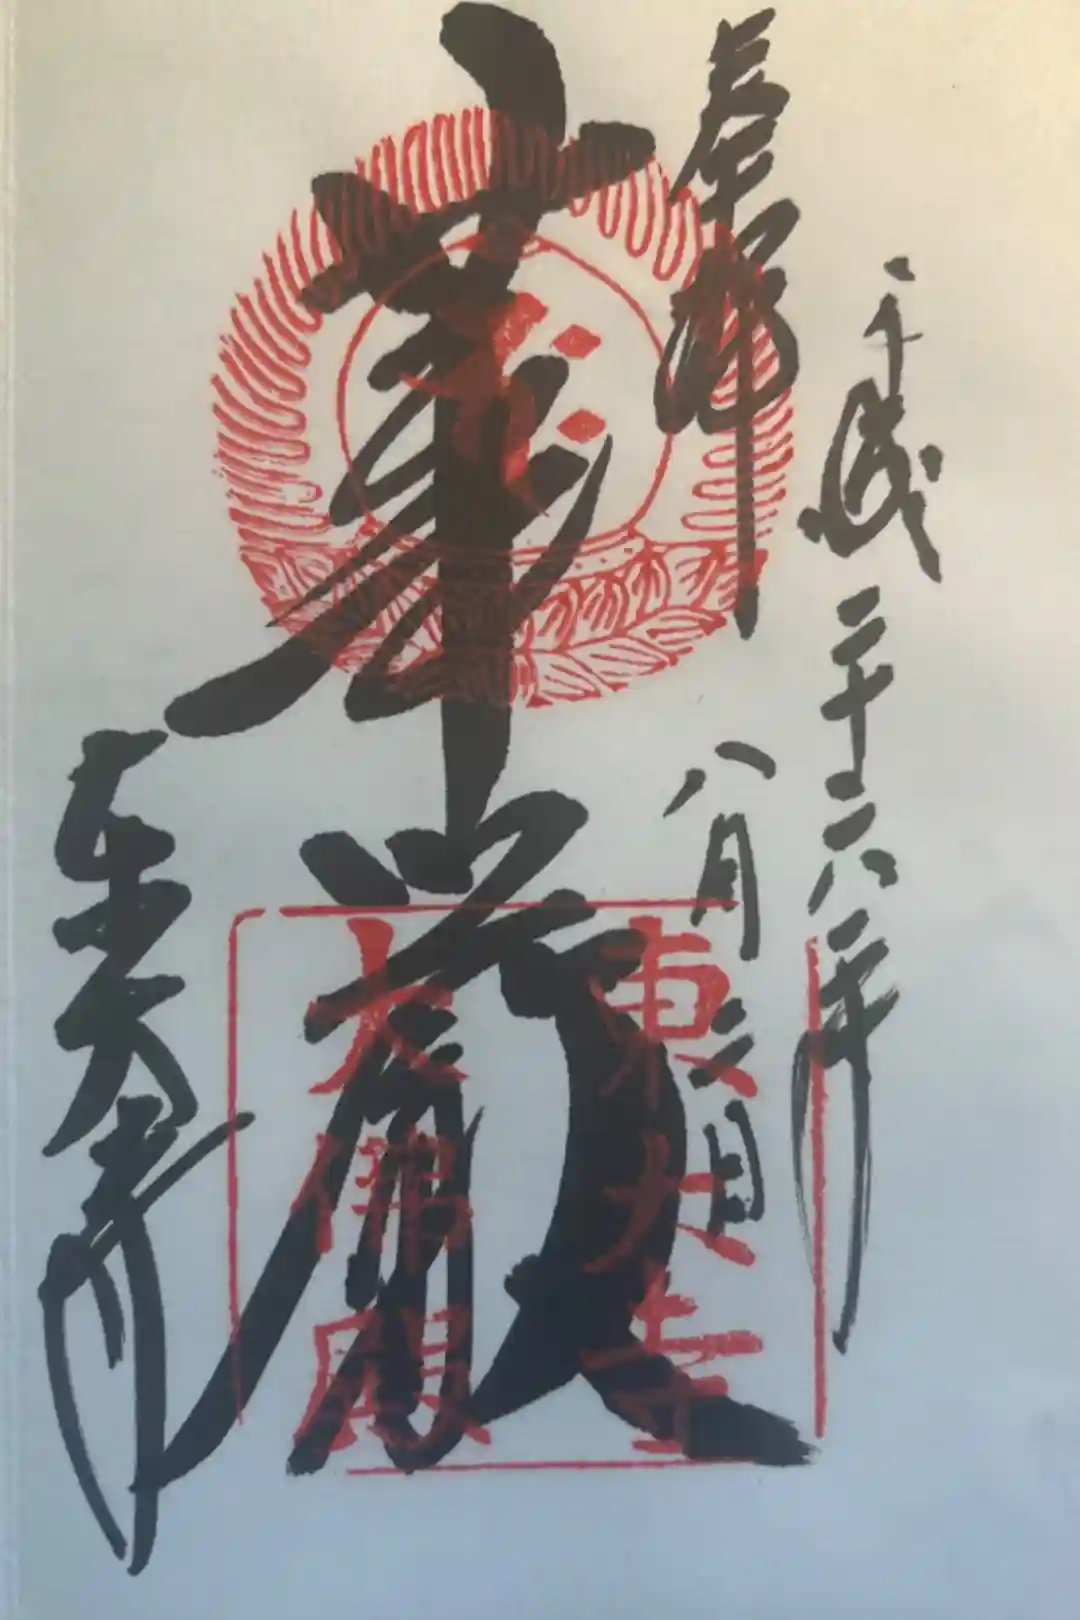 平成二十六年
八月 日
奉拝
華厳
東大寺
東大寺
大佛殿